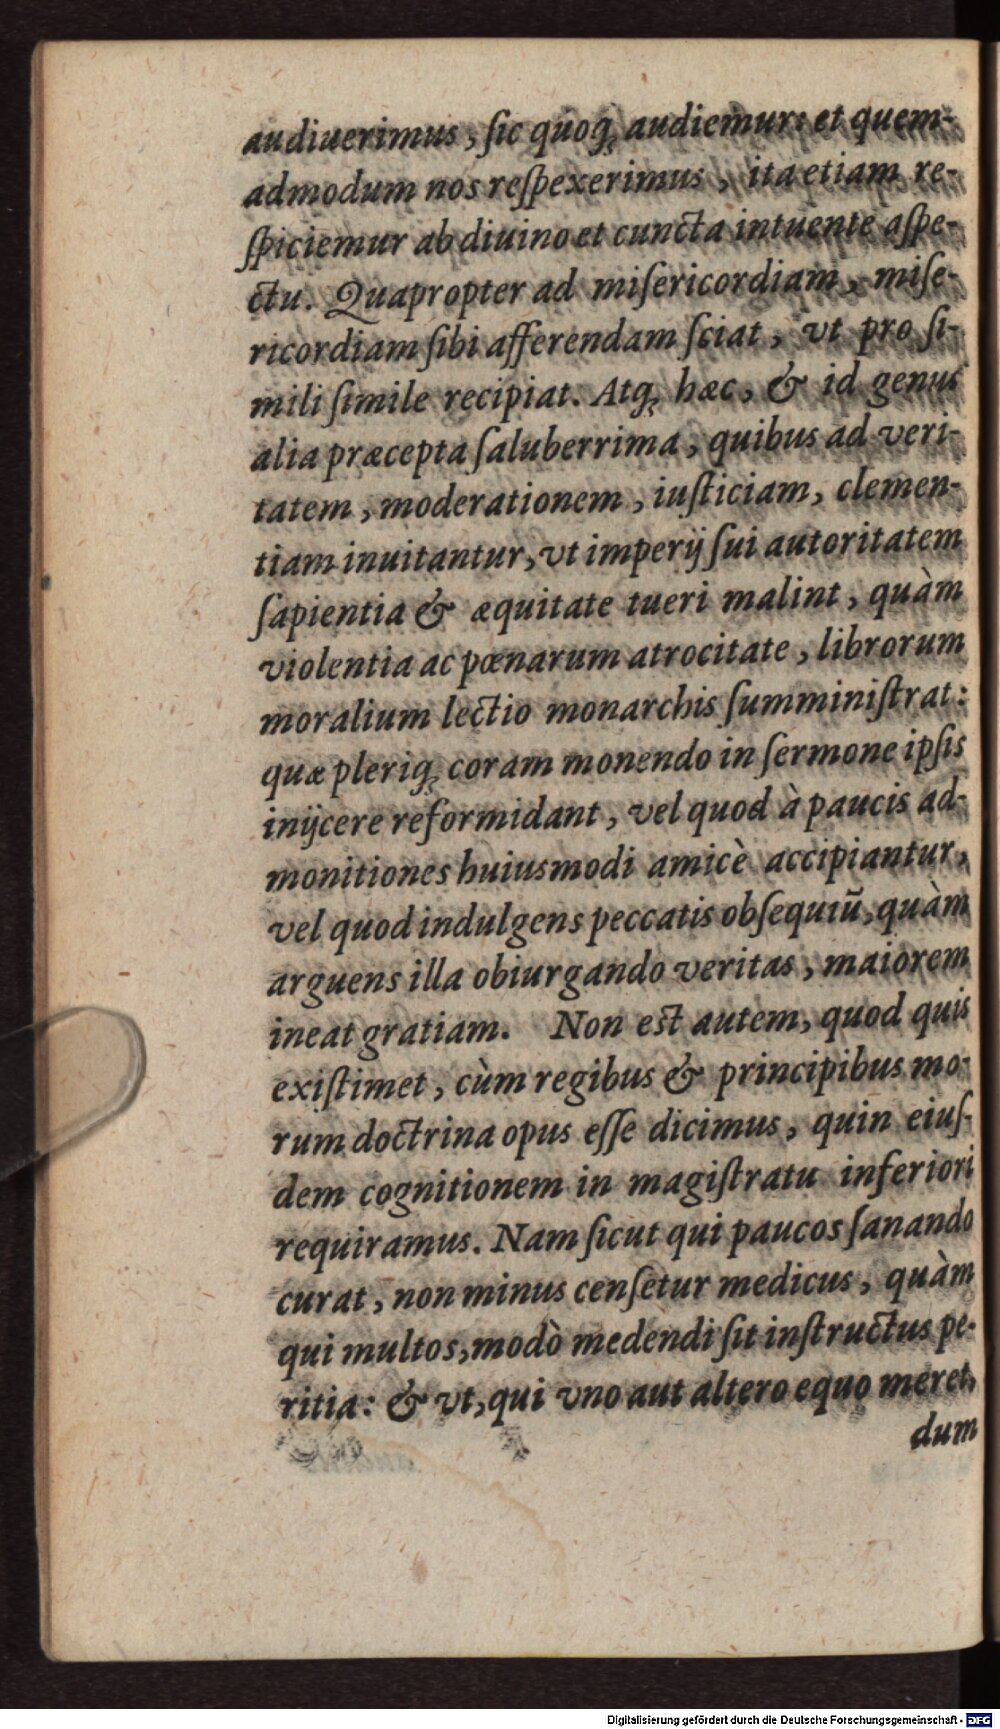 audiuerimus, ſic quoq́ꝫ audiemur: et quem-
admodum nos reſpexerimus, ita etiam re-
ſpiciemur ab diuino et cuncta intuente aſpe-
ctu. Quapropter ad miſericordiam, miſe-
ricordiam ſibi afferendam ſciat, vt pro ſi-
mili ſimile recipiat. Atqꝫ hæc, & id genus
alia præcepta ſaluberrima, quibus ad veri-
tatem, moderationem, iuſticiam, clemen-
tiam inuitantur, vt imperij ſui autoritatem
ſapientia & æquitate tueri malint, quàm
violentia ac pœnarum atrocitate, librorum
moralium lectio monarchis ſumminiſtrat:
quæ pleriqꝫ coram monendo in ſermone ipſis
inijcere reformidant, vel quod à paucis ad-
monitiones huiusmodi amicè accipiantur,
vel quod indulgens peccatis obſequiū, quàm
arguens illa obiurgando veritas, maiorem
ineat gratiam. Non est autem, quod quis
exiſtimet, cùm regibus & principibus mo-
rum doctrina opus eſſe dicimus, quin eiuſ-
dem cognitionem in magiſtratu inferiori
requiramus. Nam ſicut qui paucos ſanando
curat, non minus cenſetur medicus, quàm
qui multos, modò medendi ſit inſtructus pe-
ritia: & vt, qui vno aut altero equo meret,
dum
Digitalisierung gefördert durch die Deutsche Forschungsgemeinschaft - DFG